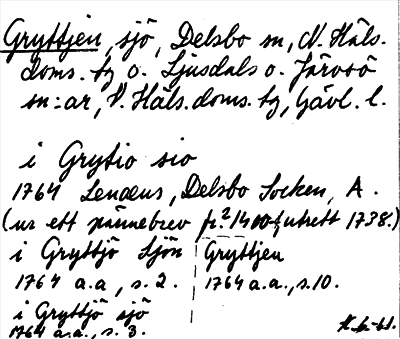 Gryttjen, sjö, Delsbo sn, N. Häls.
doms. tg o. Ljusdals o. Järvsö
sn:ar, V. Häls. doms. tg, Gävl. l.
i Grytio sio
1764 Lenæus, Delsbo Socken, A.
(ur ett pännebrev fr. 1400 utrett 1738.)
i Gryttjö Sjön
1764 a.a., s. 2.
i Gryttjö sjö
1764 a.a., s. 3.
Gryttjen
1764 a.a., s. 10.